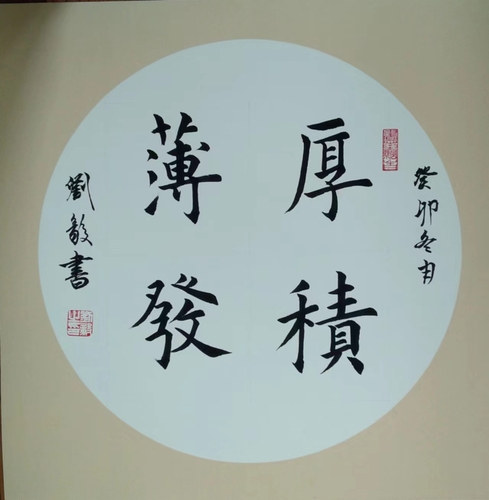 癸卯冬月
厚積
薄發
劉毅書